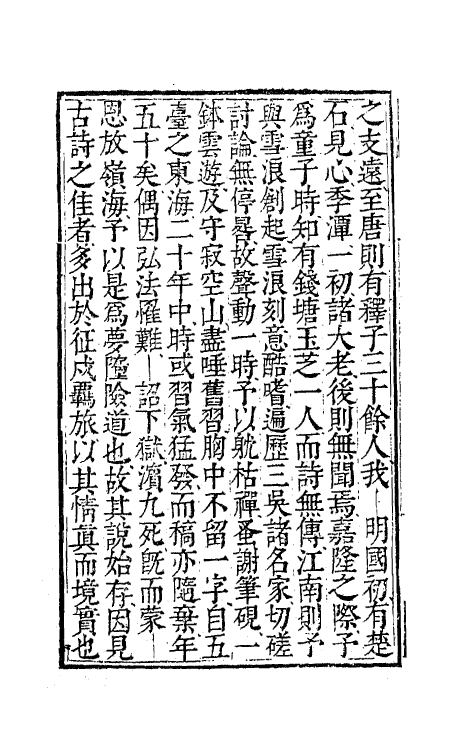 之支遠至唐則有釋子三十餘人我 明國初有楚
石見心季潭一初諸大老後則無聞焉嘉隆之際予
爲童子時知有錢塘玉芝一人而詩無傳江南則予
與雪浪創起雪浪刻意酷嗜遍歷三吳諸名家切磋
討論無停晷故聲動一時予以躭枯禪蚤謝筆硯一
鉢雲遊及守寂空山盡唾舊習胸中不留一字自五
臺之東海二十年中時或習氣猛發而稿亦隨棄年
五十矣偶因弘法罹難 詔下獄濵九死旣而蒙
恩放嶺海予以是爲夢墮險道也故其說始存因見
古詩之佳者多出於征戍羈旅以其情眞而境實也